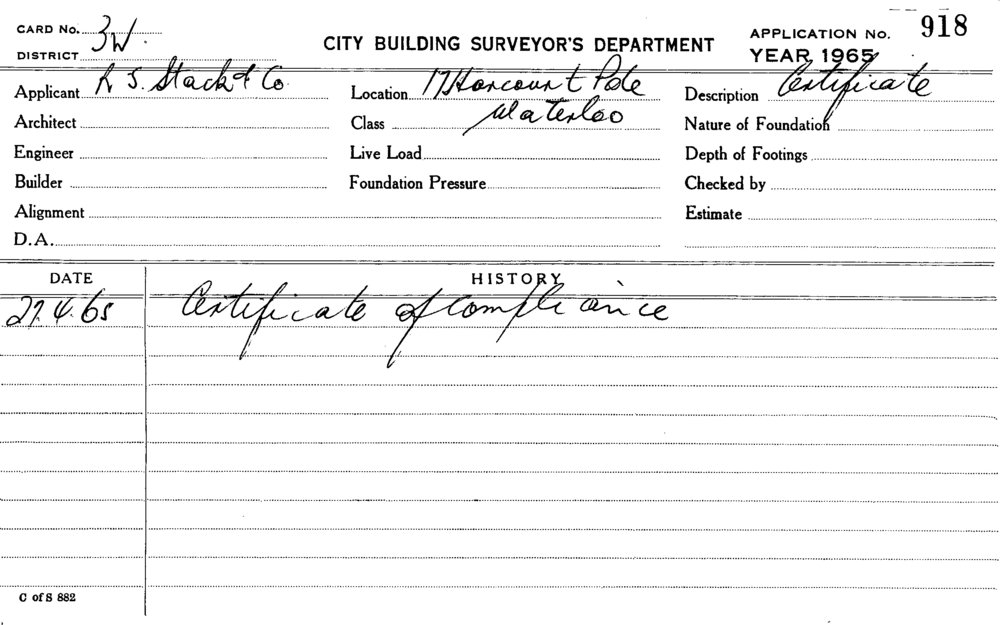 CARD No. 3W.
DISTRICT
CITY BUILDING SURVEYOR'S DEPARTMENT
APPLICATION No. 918
YEAR 1965
Applicant R S. Stack & Co
Location 17 Harcourt Pde
Waterloo
Description Certificate
Architect
Class
Nature of Foundation
Engineer
Live Load
Depth of Footings
Builder
Foundation Pressure
Checked by
Alignment
Estimate
D.A.
DATE HISTORY
27.4.65 Certificate of Compliance
C of S 882